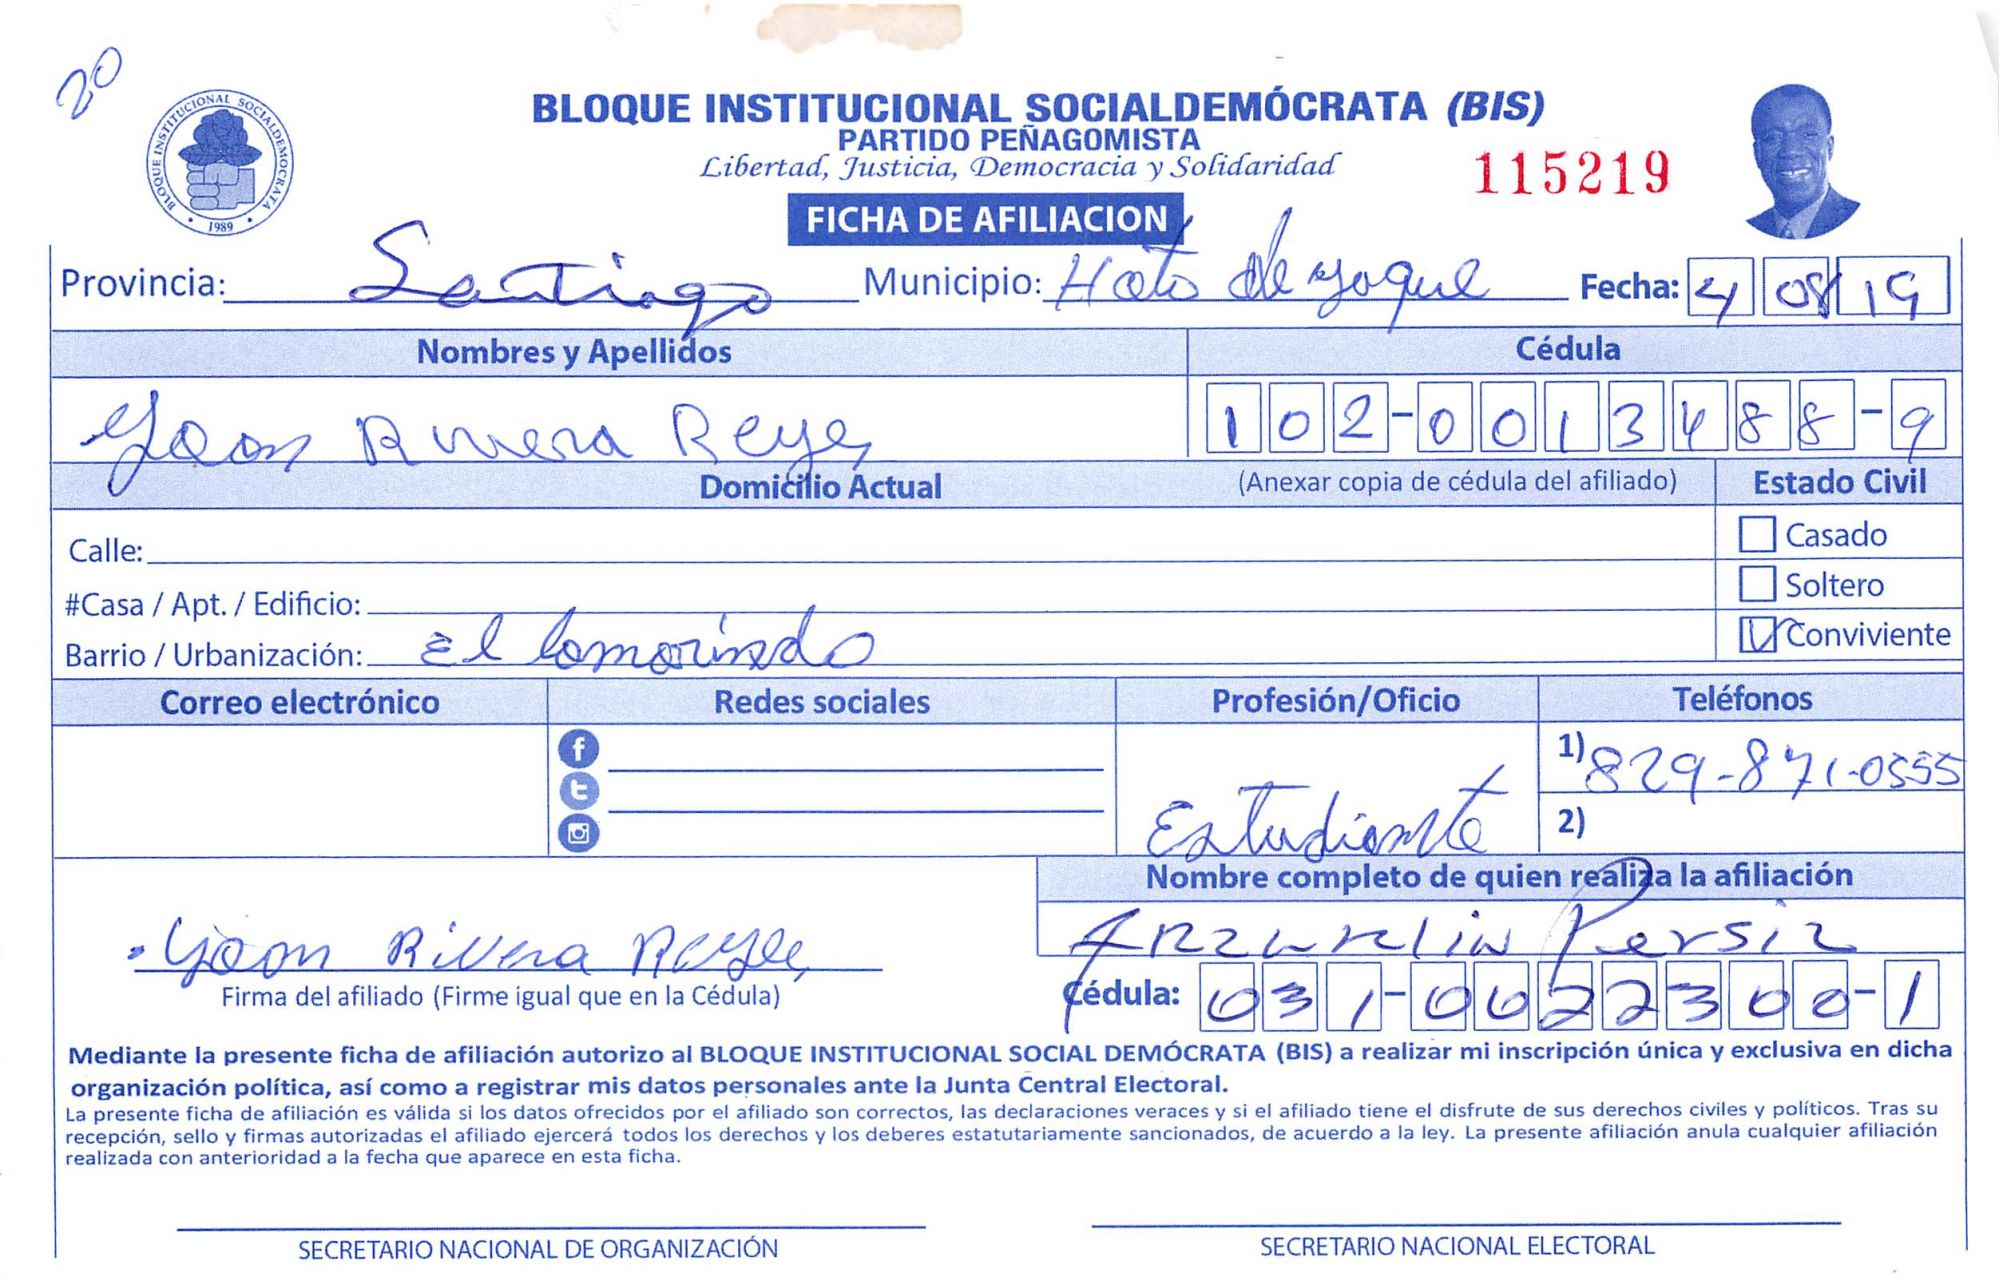 20
BLOQUE INSTITUCIONAL SOCIALDEMÓCRATA (BIS)
PARTIDO PEÑAGOMISTA
Libertad, Justicia, Democracia y Solidaridad
115219
BLOQUE INSTITUCIONAL SOCIALDEMOCRATA
1989
FICHA DE AFILIACION
Provincia: Santiago Municipio: Hato de yaque Fecha: 4 08 19
Nombres y Apellidos Cédula
Yoan Rivera Reyes 102-0013488-9
Domicilio Actual (Anexar copia de cédula del afiliado) Estado Civil
Calle: Casado
#Casa / Apt. / Edificio: Soltero
Barrio / Urbanización: El tamarindo Conviviente
Correo electrónico Redes sociales Profesión/Oficio Teléfonos
Estudiante 1) 829-871-0555
2)
Nombre completo de quien realiza la afiliación
Yoan Rivera Reyes
Firma del afiliado (Firme igual que en la Cédula) Cédula: 031-0022300-1
Mediante la presente ficha de afiliación autorizo al BLOQUE INSTITUCIONAL SOCIAL DEMÓCRATA (BIS) a realizar mi inscripción única y exclusiva en dicha
organización política, así como a registrar mis datos personales ante la Junta Central Electoral.
La presente ficha de afiliación es válida si los datos ofrecidos por el afiliado son correctos, las declaraciones veraces y si el afiliado tiene el disfrute de sus derechos civiles y políticos. Tras su
recepción, sello y firmas autorizadas el afiliado ejercerá todos los derechos y los deberes estatutariamente sancionados, de acuerdo a la ley. La presente afiliación anula cualquier afiliación
realizada con anterioridad a la fecha que aparece en esta ficha.
SECRETARIO NACIONAL DE ORGANIZACIÓN SECRETARIO NACIONAL ELECTORAL